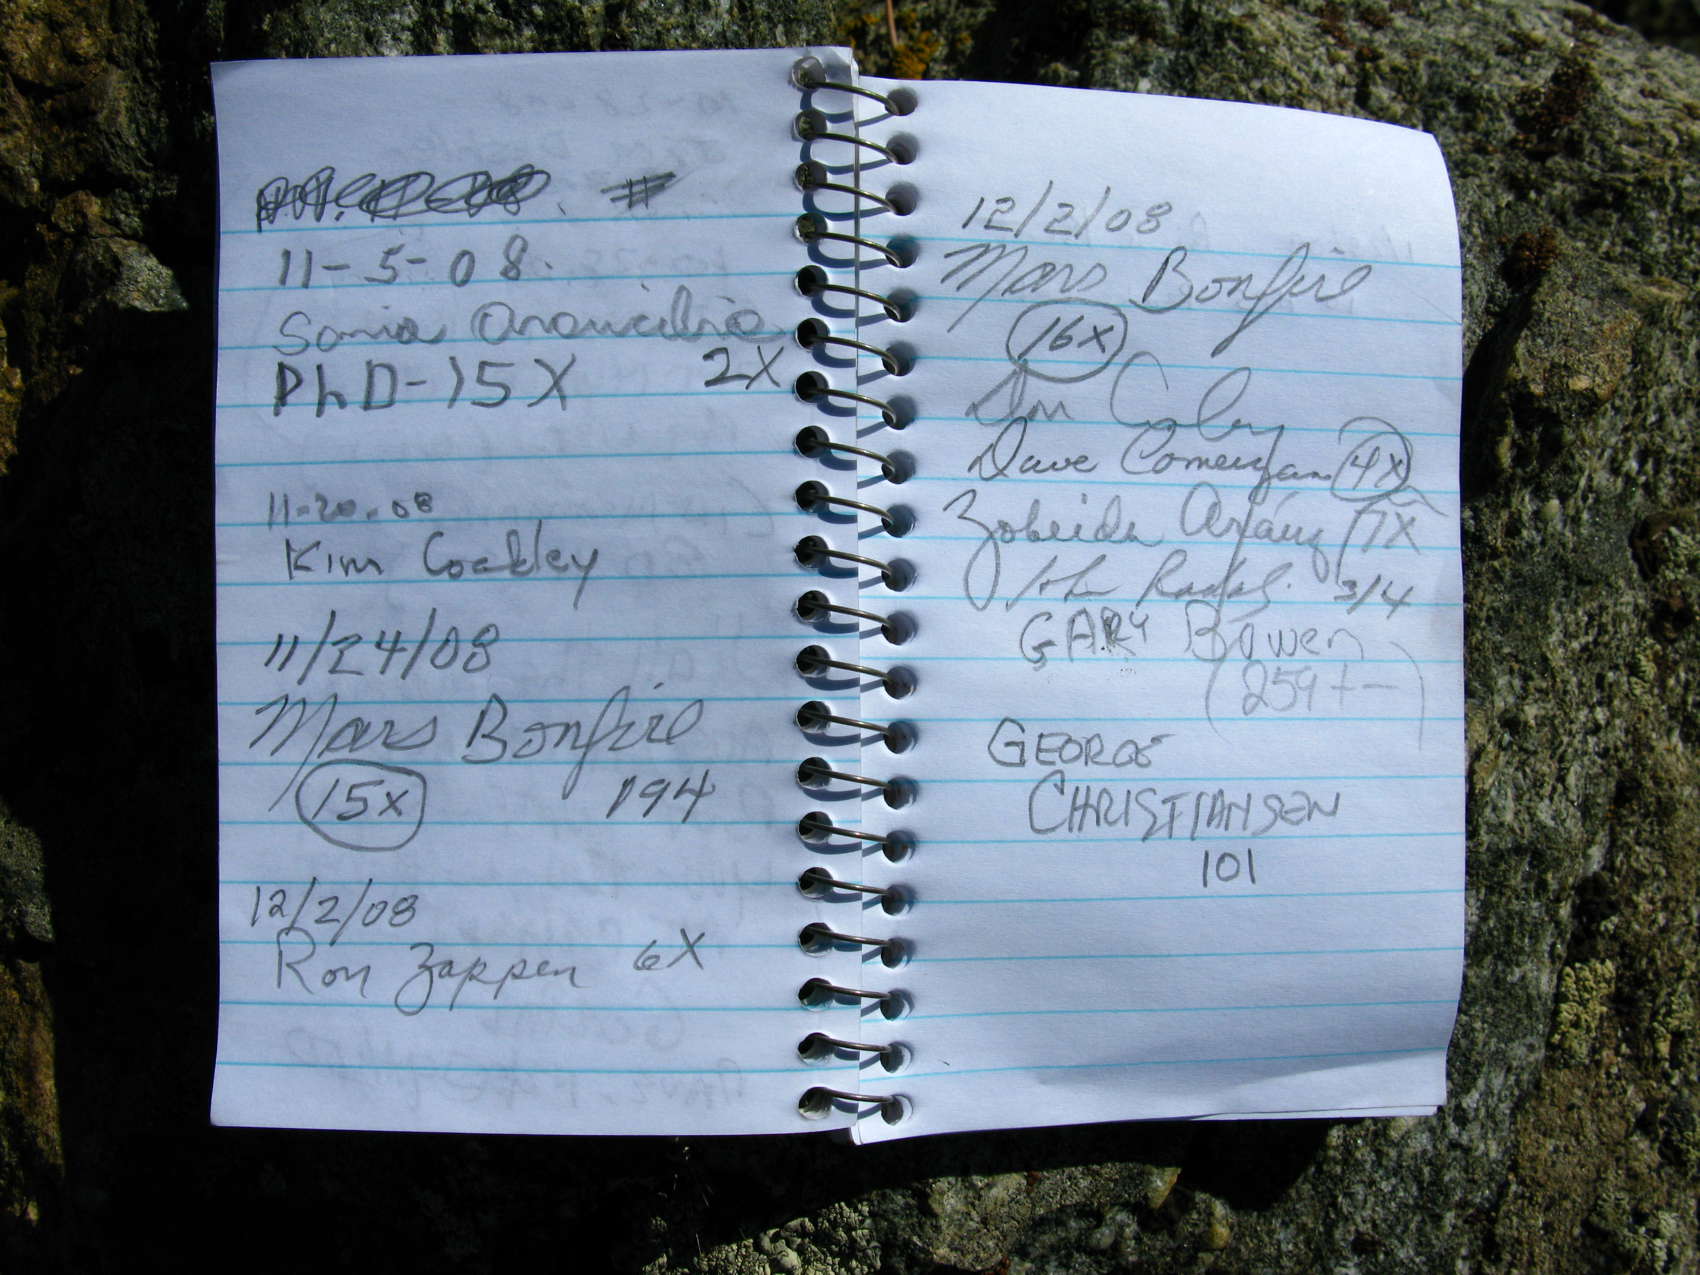 11-5-08.
Sonia
PhD-15X 2X
11-20-08
Kim Coakley
11/24/08
Mars Bonfire
15x 194
12/2/08
Ron Zappen 6X
12/2/08
Mars Bonfire
16x
Don
Dave Comerzan 4X
Zobeida Aráuz 7X
John 3/4
GARY Bowen
(259+-)
GEORGE
CHRISTIANSEN
101